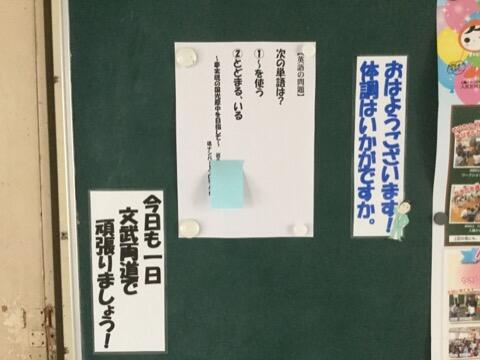 おはようございます!
体調はいかがですか。
【英語の問題】
次の単語は?
①~を使う
②とどまる、いる
今日も一日
文武両道で
頑張りましょう!